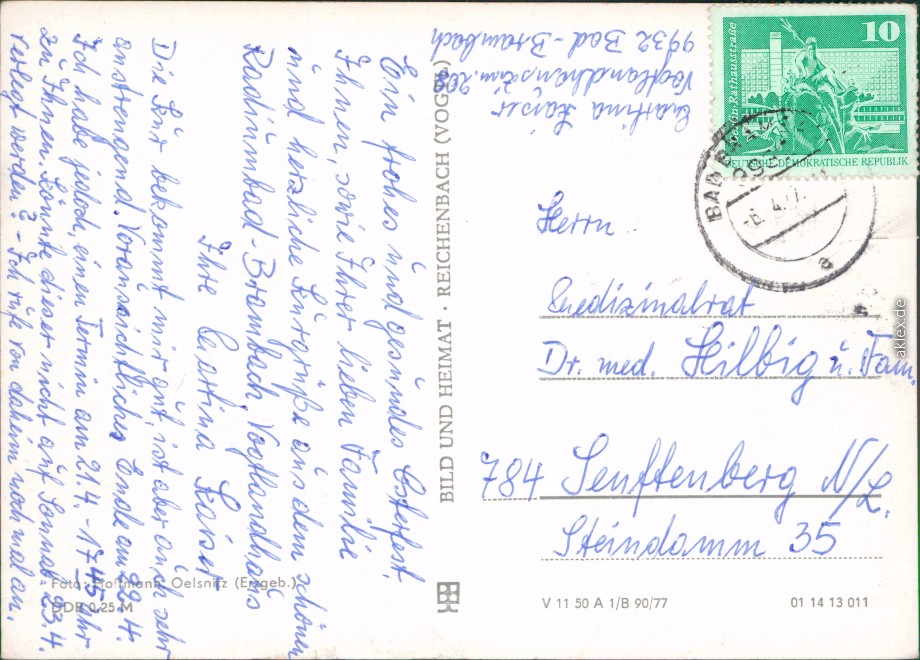 Martina Kaiser
Vogtlandhaus Zim. 208
9932 Bad-Brambach
Ein frohes und gesundes Osterfest,
Ihnen, sowie Ihrer lieben Familie
und herzliche Kurgrüße aus dem schönen
Radiumbad-Brambach, Vogtlandhaus
Ihre Martina Kaiser
Die Kur bekommt mir gut, ist aber auch sehr
anstrengend. Voraussichtliches Ende am 22.4.
Ich habe jedoch, einen Termin am 21.4. - 17 45 Uhr
zu Ihnen. Könnte dieser nicht auf Sonnab. 23.4.
verlegt werden? - Ich rufe von daheim noch mal an.
Foto: Hoffmann, Oelsnitz (Erzgeb.)
DDR 0,25 M
BILD UND HEIMAT · REICHENBACH (VOGTL)
10
Berlin-Rathausstraße
DEUTSCHE DEMOKRATISCHE REPUBLIK
BAD BRAMBACH
99
-6.4.77
a
Herrn
Medizinalrat
Dr. med. Hilbig u. Fam.
784 Senftenberg N/L.
Steindamm 35
V 11 50 A 1/B 90/77
01 14 13 011
aklex.de